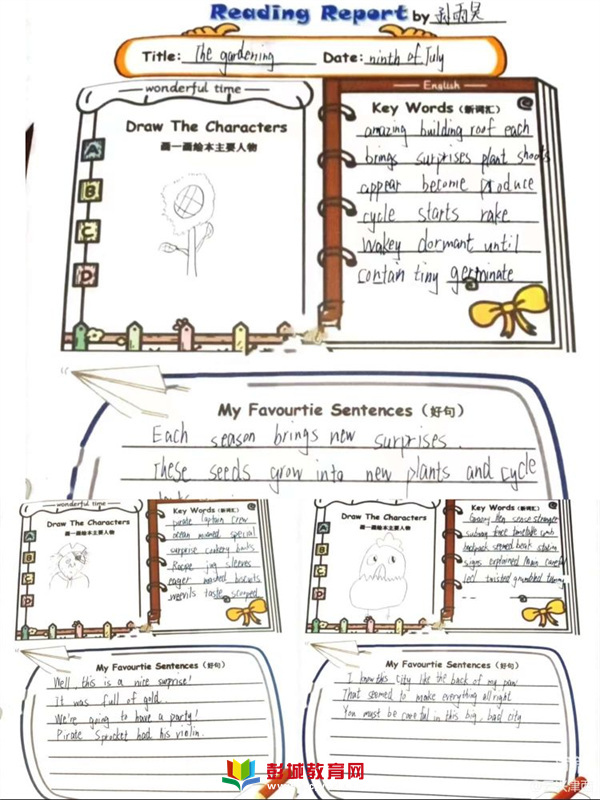 Reading Report by 孙雨昊
Title: The gardening Date: ninth of July
wonderful time
Draw The Characters
画一画绘本主要人物
A
B
C
D
English
Key Words (新词汇)
amazing building roof each
brings surprises plant shoots
appear become produce
cycle starts rake
wakey dormant until
contain tiny germinate
My Favourtie Sentences (好句)
Each season brings new surprises.
These seeds grow into new plants and cycle
wonderful time
Draw The Characters
画一画绘本主要人物
A
B
C
D
Key Words (新词汇)
pirate captain crew
ocean moored special
surprise cookery books
Recipe jug sleeves
eager mashed biscuits
weevils taste scooped
My Favourtie Sentences (好句)
Well, this is a nice surprise!
It was full of gold.
We're going to have a party!
Pirate Sprocket had his violin.
Draw The Characters
画一画绘本主要人物
A
B
C
D
Key Words (新词汇)
sense stranger
subway face timetable
backpack seemed beak station
signs explained careful
led twisted grumbled
My Favourtie Sentences (好句)
I know this city like the back of my paw
That seemed to make everything all right
You must be careful in this big, bad city
彭城教育网